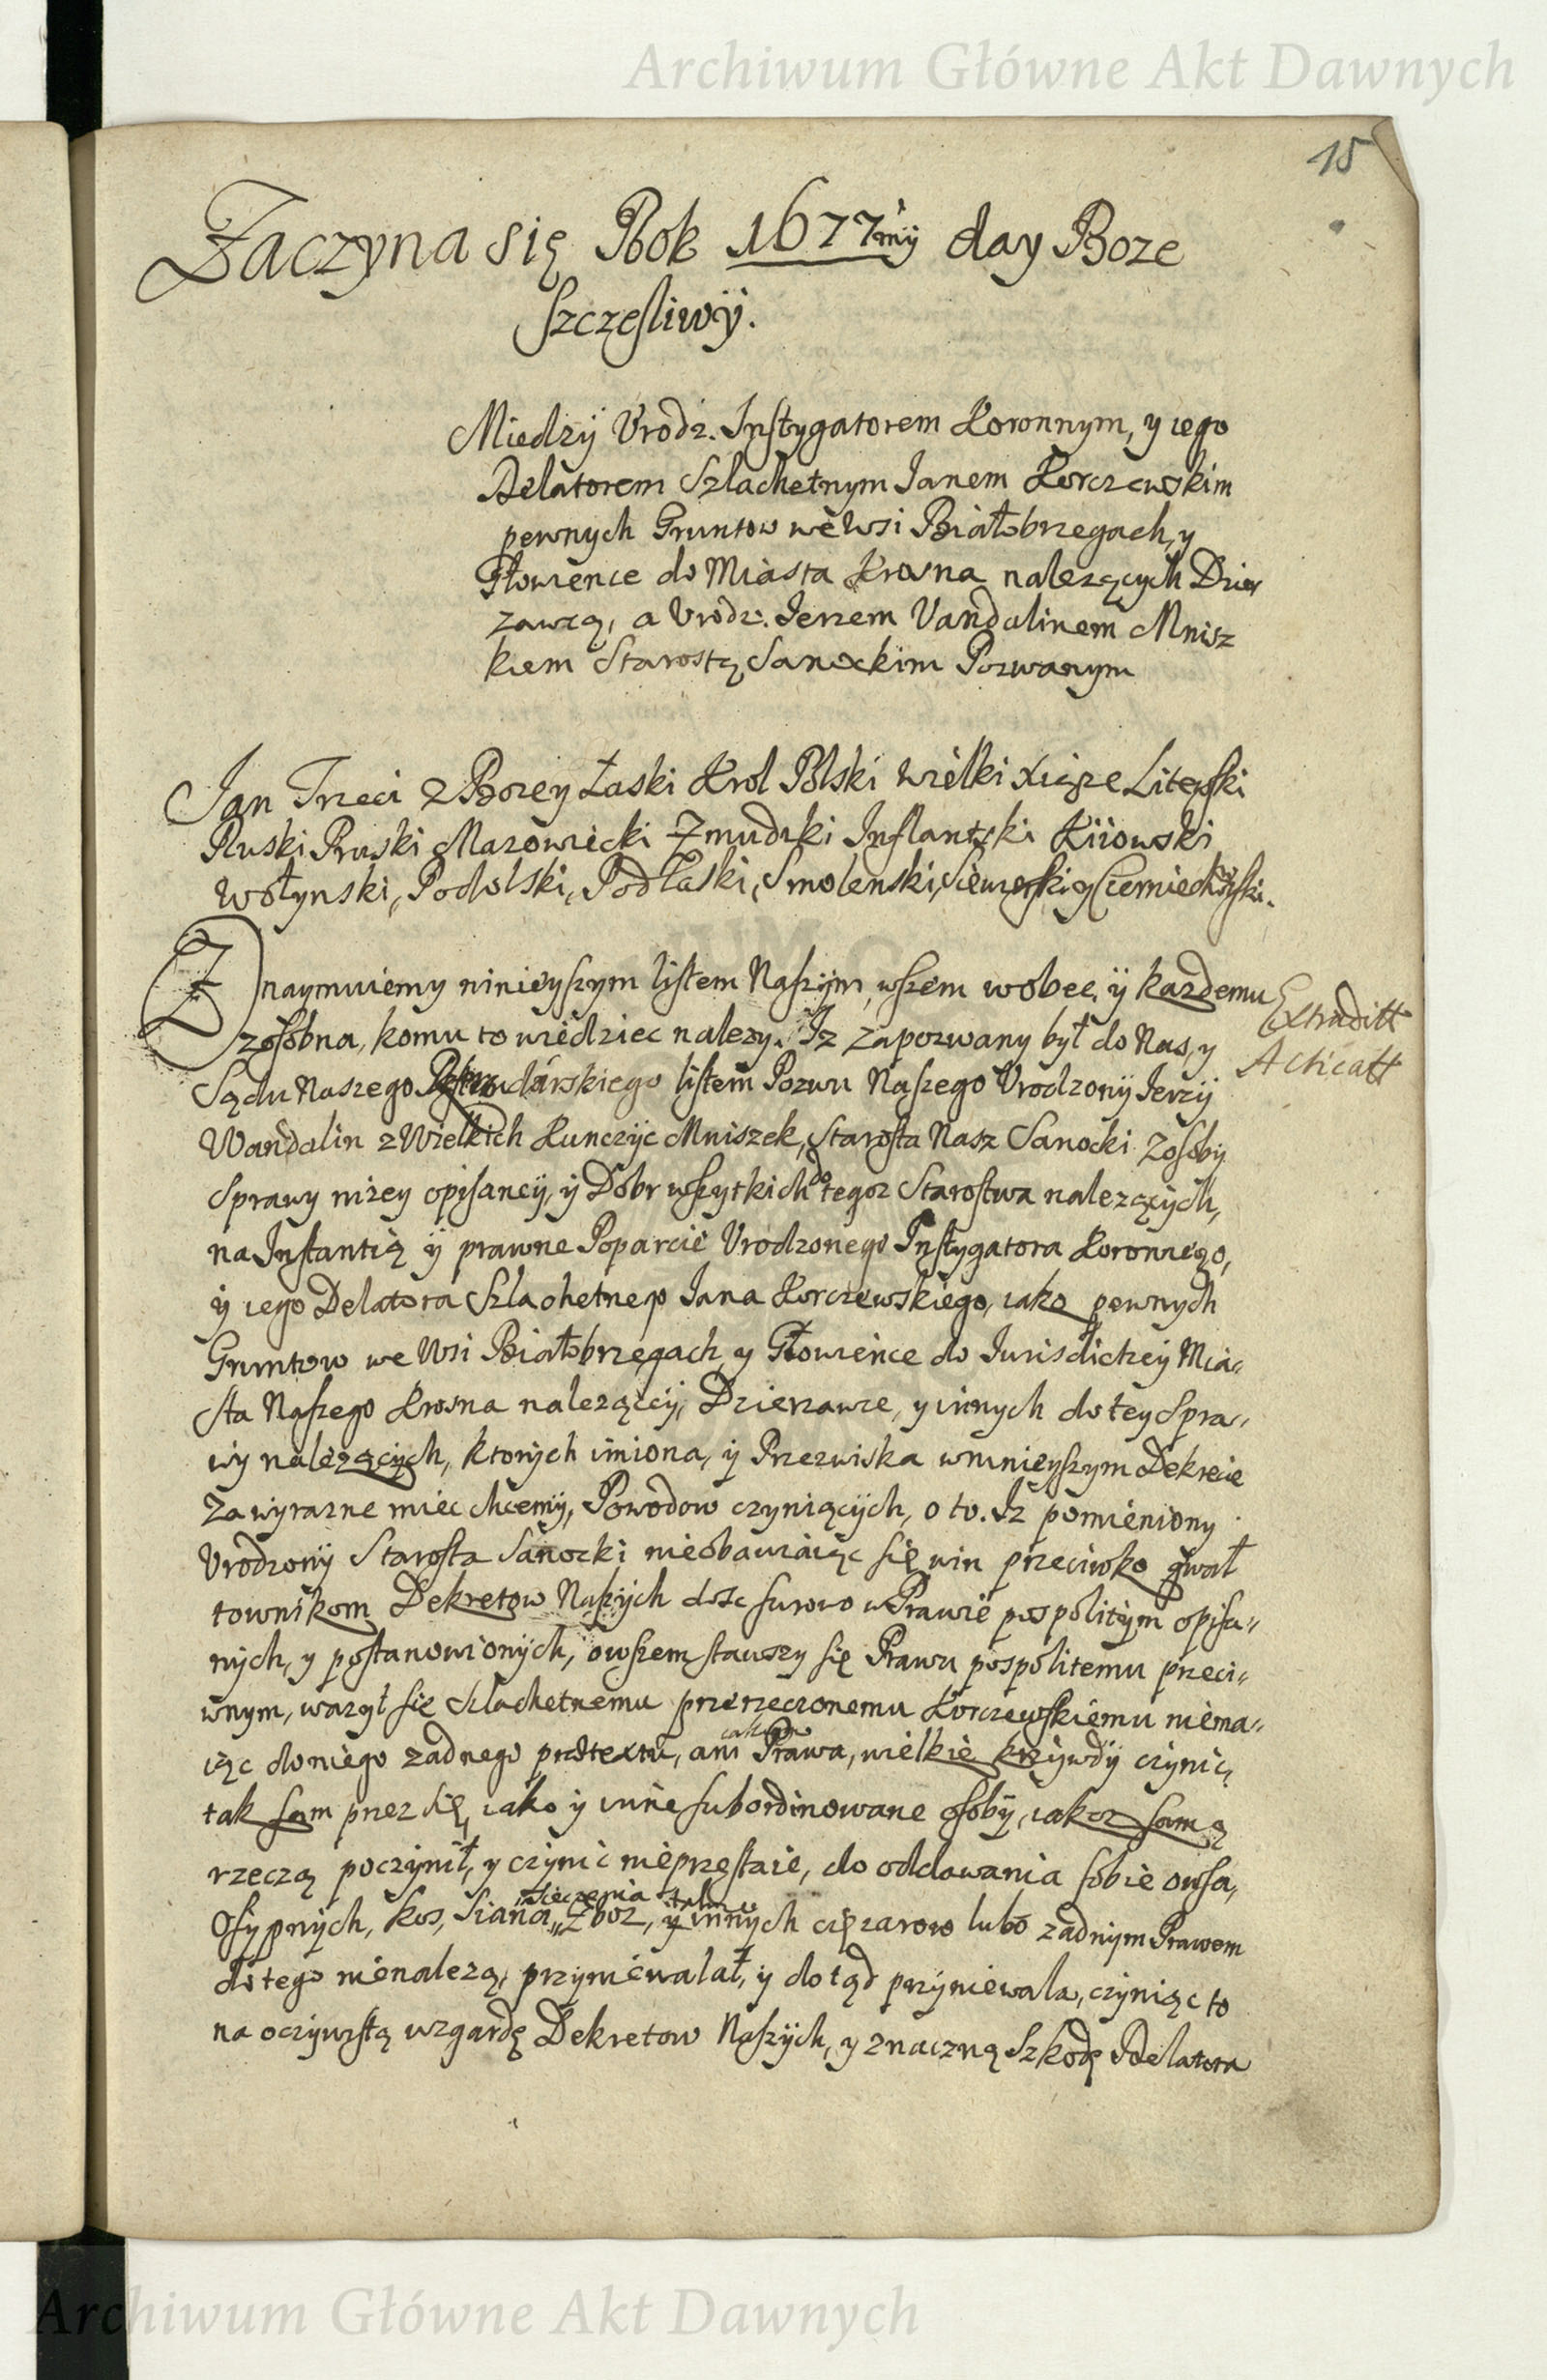 Archiwum Główne Akt Dawnych
15
Zaczyna się Rok 1677my day Boze
Szczęsliwÿ.
Miedzÿ Vrodz. Instygatorem Koronnym, y iego
Delatorem Szlachetnym Janem Korczewskim
pewnych Gruntow we Wsi Białobrzegach, y
Głowience do Miasta Krosna nalezących Dzier
zawcą, a Vrodz. Jerzem Vandalinem Mnisz
kiem Starostą Sanockim Pozwanym
Jan Trzeci z Bozey Łaski Krol Polski Wielki Xiąze Litewski
Ruski Pruski Mazowiecki Zmudzki Inflantski Kiiowski
Wołynski, Podolski, Podlaski, Smolenski, Siewierski y Czerniechowski.
Znaymuiemy ninieyszym listem Naszÿm, wszem wobec, ÿ kazdemu
zosobna, komu to wiedziec nalezy. Iz zapozwany był do Nas, y
Sądu Naszego listem Pozwu Naszego Vrodzonÿ Jerzÿ
Wandalin z Wielkich Kunczÿc Mniszek, Starosta Nasz Sanocki z osobÿ
Sprawy nizey opisaneÿ, ÿ Dobr wszytkich do tegoz Starostwa nalezącÿch,
na Instantią ÿ prawne Poparcie Vrodzonego Instygatora Koronnego,
ÿ iego Delatora Szlachetnego Jana Korczewskiego, iako pewnych
Gruntow we Wsi Białobrzegach, y Głowience do Jurisdictieÿ Mia„
sta Naszego Krosna nalezącÿ, Dzierzawce, y innych do tey Spra„
wÿ nalezącÿch, ktorÿch imiona, ÿ Przezwiska w ninieyszym Dekrecie
za wyrazne miec chcemÿ, Powodow czyniącÿch, o to. Iz pomieniony
Vrodzonÿ Starosta Sanocki nieobawiaiąc się win przeciwko gwał
townikom Dekretow Naszÿch dosc surowo w Prawie pospolitÿm opisa„
nÿch, y postanowionÿch, owszem stawszy się Prawu pospolitemu przeci„
wnym, wazył się Szlachetnemu przerzeczonemu Korczewskiemu niema„
iąc do niego zadnego prætextu, ani Prawa, wielkie krzÿwdÿ czynic,
tak sam przez się, iako ÿ inne subordinowane osobÿ, iakoz samą
rzeczą poczÿnił, y czÿnic nieprzestaie, do oddawania sobie owsa,
Osypnÿch, kos, Siana, sieczenia Zboz, y innÿch cięzarow lubo zadnÿm Prawem
do tego nienalezą, przyniewalał, y dotąd przÿniewala, czyniąc to
na oczÿwistą wzgardę Dekretow Naszÿch, y znaczną Szkodę Delatora
Extraditt
Acticatt
Archiwum Główne Akt Dawnych